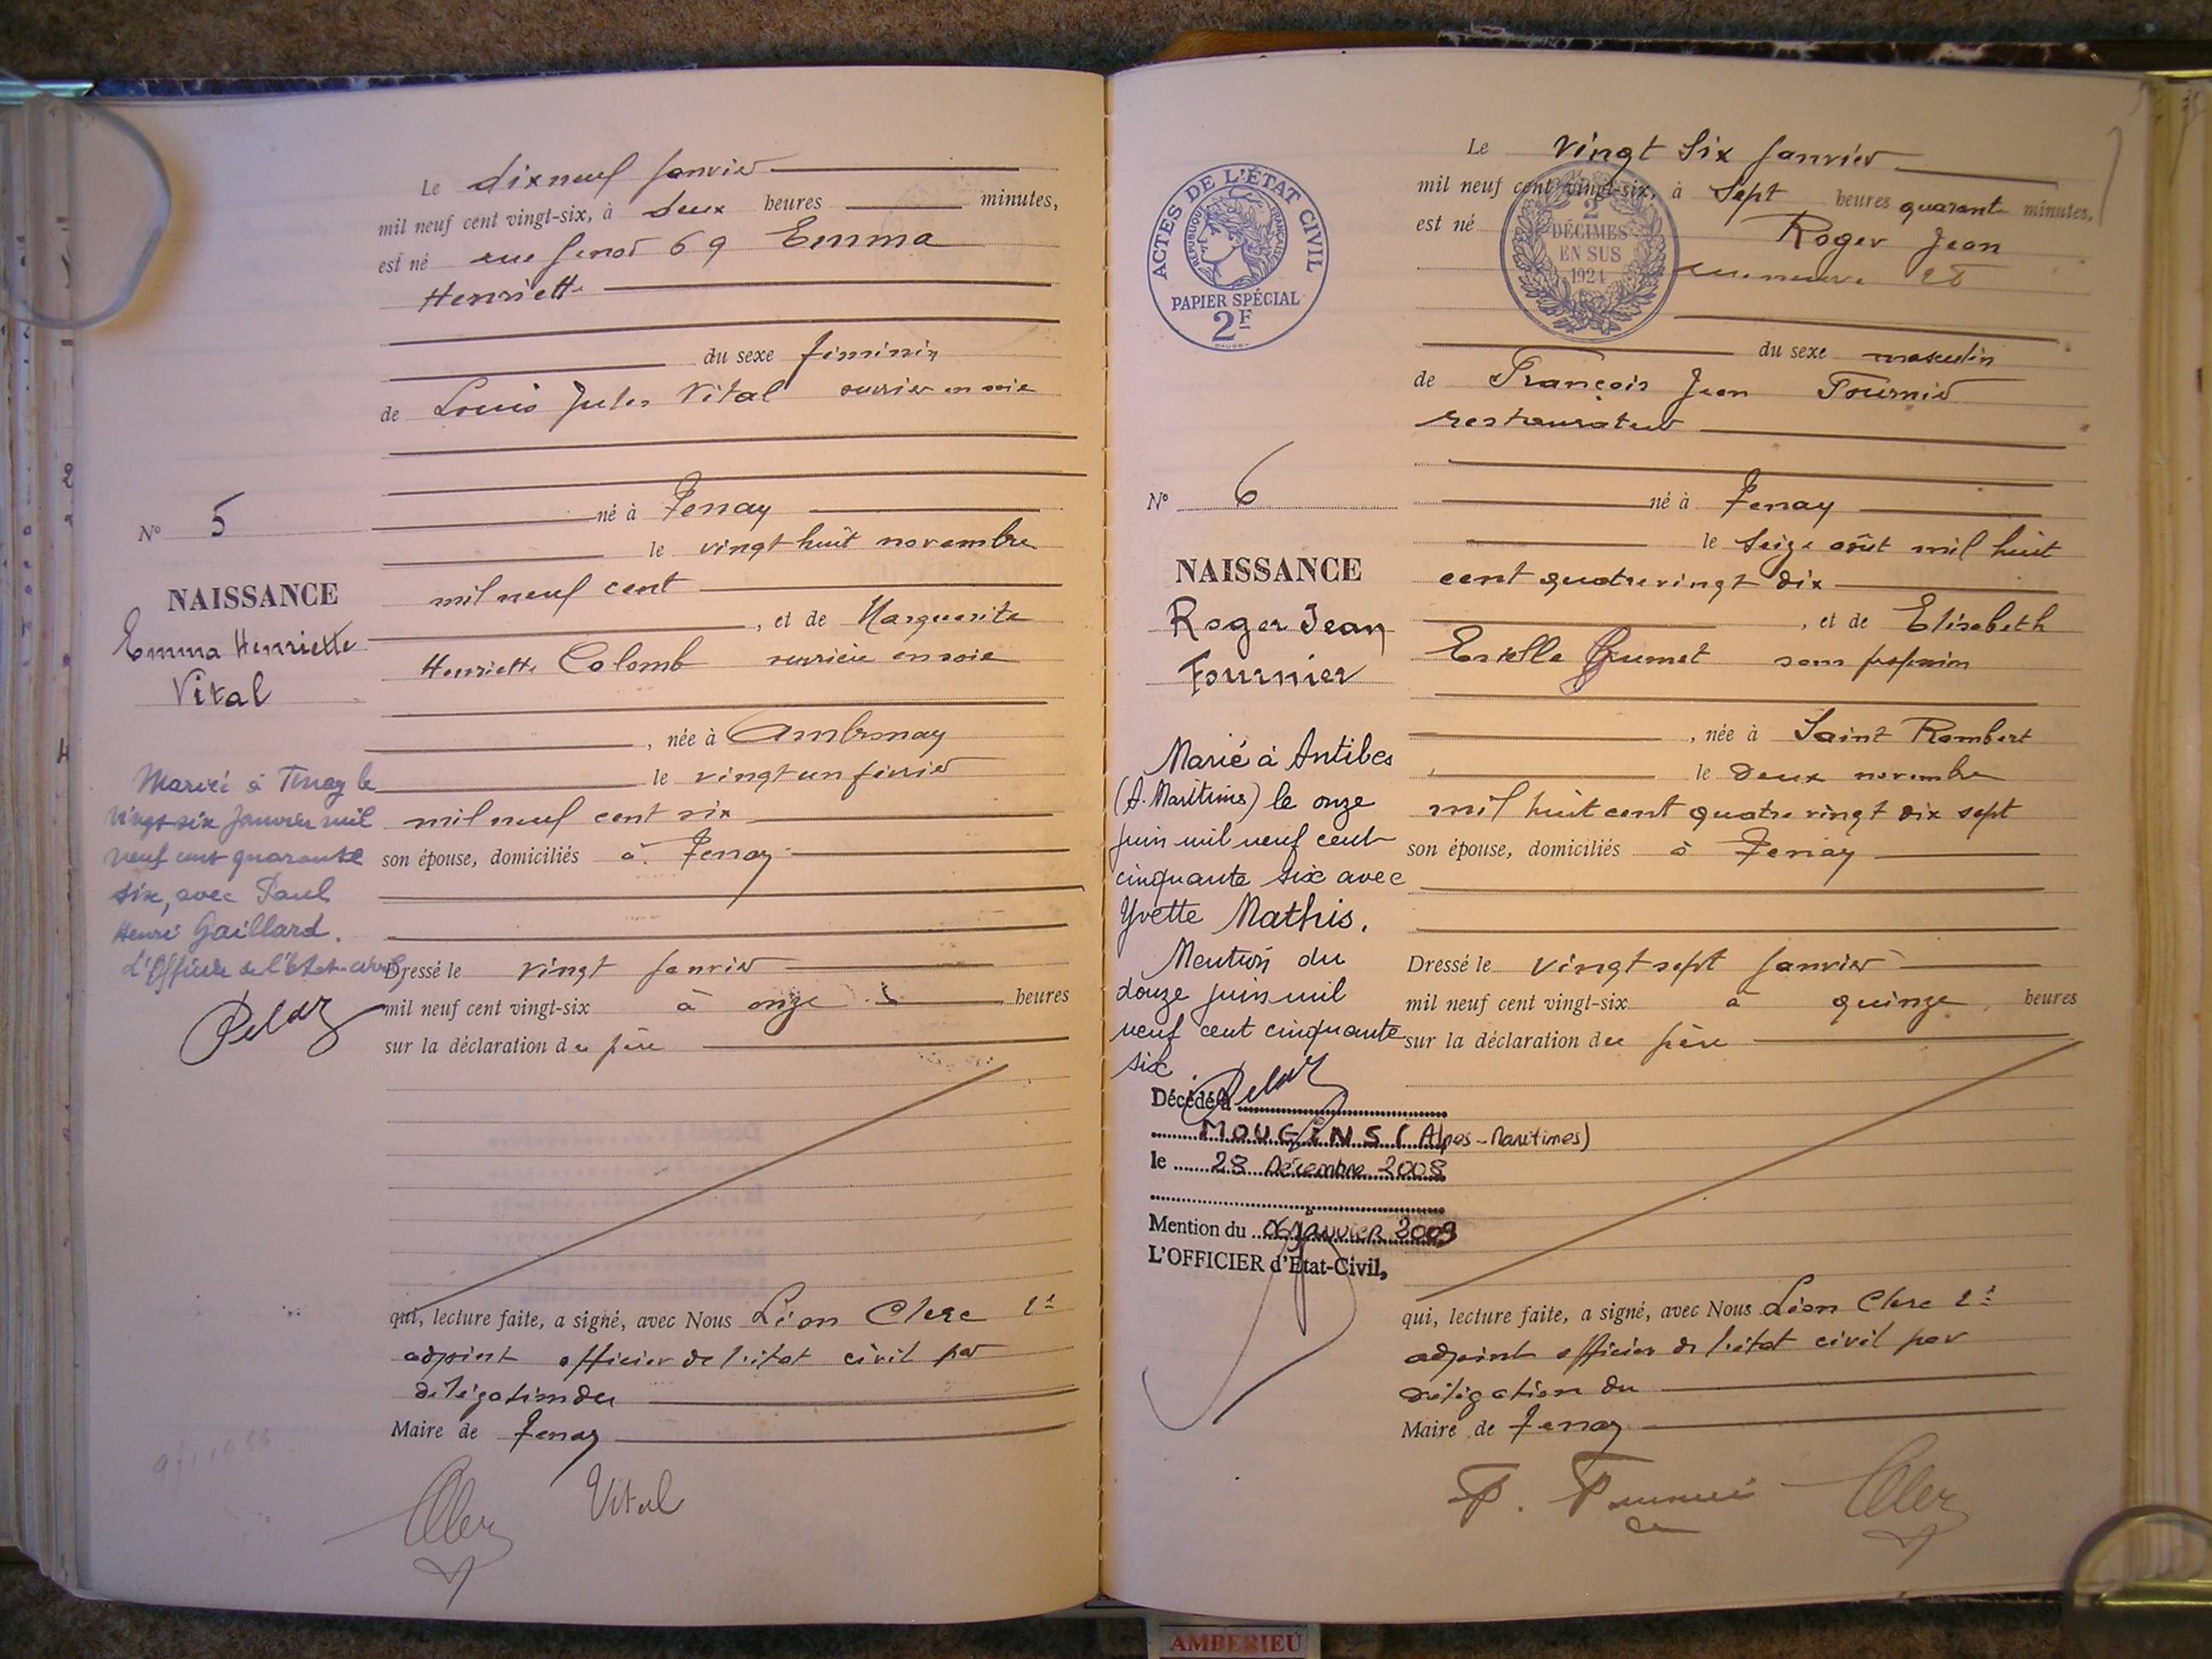 Le dixneuf Janvier
mil neuf cent vingt-six, à deux heures minutes,
est né rue Genod 69 Emma
Henriette
du sexe féminin
de Louis Jules Vital ouvrier en soie
né à Tenay
le vingt huit novembre
mil neuf cent
, et de Marguerite
Henriette Colomb ouvrière en soie
, née à Ambronay
le vingt un février
mil neuf cent six
son épouse, domiciliés à Tenay
Dressé le vingt Janvier
mil neuf cent vingt-six à onze heures
sur la déclaration du père
qui, lecture faite, a signé, avec Nous Léon Clerc 1er
adjoint officier de l'état civil par
délégation du
Maire de Tenay
Vital
N° 5
NAISSANCE
Emma Henriette
Vital
Mariée à Tenay le
vingt six Janvier mil
neuf cent quarante
six, avec Paul
Henri Gaillard.
L'Officier de l'Etat-civil
ACTES DE L'ÉTAT CIVIL
RÉPUBLIQUE FRANÇAISE
PAPIER SPÉCIAL
2F
2
DÉCIMES
EN SUS
1924
Le vingt Six Janvier
mil neuf cent vingt-six, à Sept heures quarante minutes,
est né Roger Jean
rue neuve 28
du sexe masculin
de François Jean Fournier
restaurateur
né à Tenay
le Seize août mil huit
cent quatre vingt dix
, et de Elisabeth
Estelle Grumet sans profession
, née à Saint Rambert
le deux novembre
mil huit cent quatre vingt dix sept
son épouse, domiciliés à Tenay
Dressé le vingt sept Janvier
mil neuf cent vingt-six à quinze heures
sur la déclaration du père
qui, lecture faite, a signé, avec Nous Léon Clerc 1er
adjoint officier de l'état civil par
délégation du
Maire de Tenay
N° 6
NAISSANCE
Roger Jean
Fournier
Marié à Antibes
(A. Maritimes) le onze
juin mil neuf cent
cinquante six avec
Yvette Mathis.
Mention du
douze juin mil
neuf cent cinquante
six
Décédé à
MOUGINS (Alpes-Maritimes)
le 28 Décembre 2008
Mention du 06 janvier 2009
L'OFFICIER d'État-Civil,
AMBERIEU